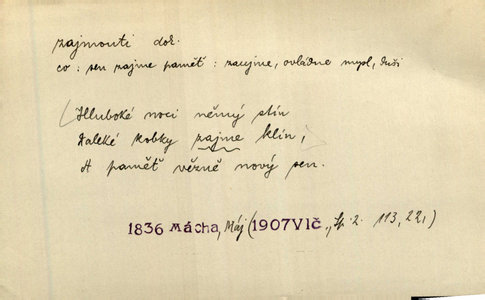 zajmouti dok.
co: sen zajme paměť: zaujme, ovládne mysl, duši
Hluboké noci němý stín
Daleké kobky zajme klín,
A paměť vězně nový sen.
1836 Mácha, Máj (1907 Vlč., Sp. 2. 113, 22,)